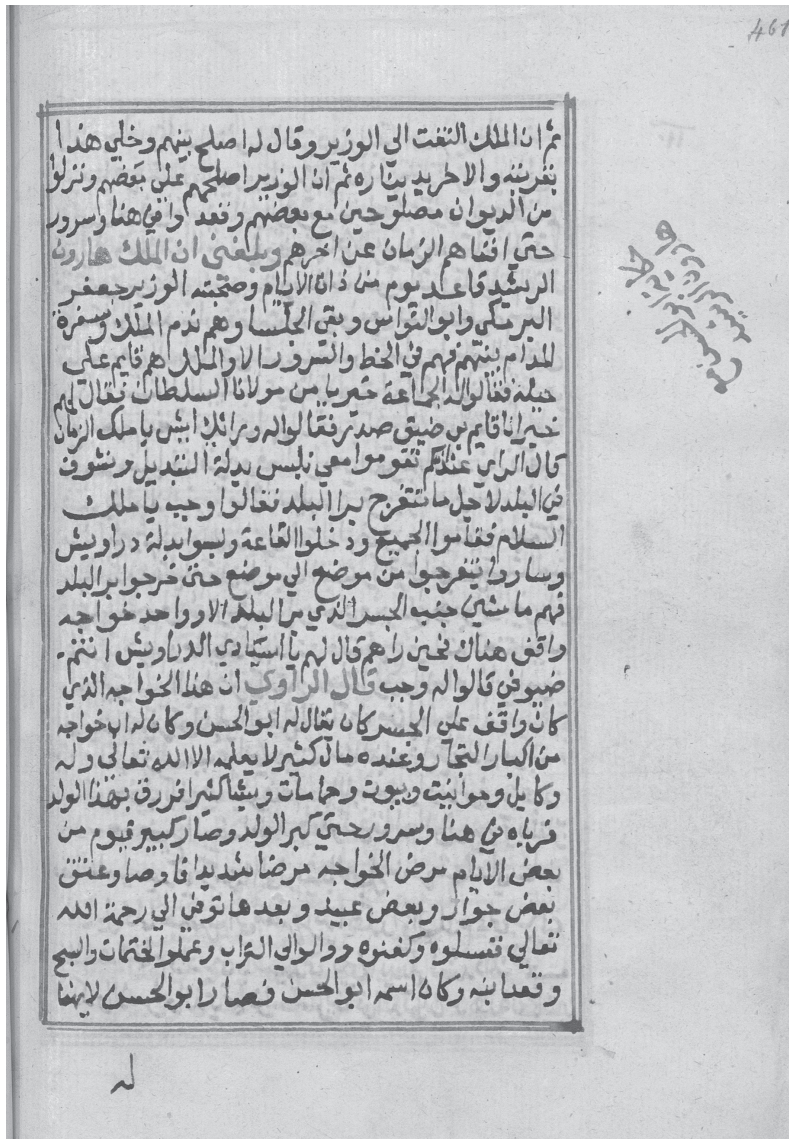 461
ثم ان الملك التفت الي الوزير وقال له اصلح بينهم وخلي هذا
بقرينه والاخر يديناره ثم ان الوزير اصلحهم علي بعضهم ونزلوا
من الديوان مصلوحين مع بعضهم وقعدوا في هنا وسرور
حتي افناهم الزمان عن اخرهم وبلغني ان الملك هارون
الرشيد قاعد يوم من ذات الايام وصحبته الوزير جعفر
البرمكي وابو النواس وبقي الجلسا وهم ندم الملك وسفرة
المدام بينهم فهم في الحظ والسرور الا والملك اهم قايم علي
حيله فقالوا له الجماعة خير يا من مولانا السلطان فقال لهم
خير انا قايم بي ضيق صدر فقالوا له ورائك ايش يا ملك الزمان
قال الراي عندكم تقوموا معي نلبس بدلة التبديل ونشوف
في البلد لاجل ما نتفرج برا البلد فقالوا وجب يا ملك
السلام فقاموا الجميع ودخلوا القاعة ولبسوا بدلة دراويش
وساروا يتفرجوا من موضع الي موضع حتي خرجوا برا البلد
فهم ماشين جنب الجسر الذي برا البلد الا وواحد خواجه
واقف هناك فحين راهم قال لهم يا اسيادي الدراويش انتم
ضيوفي قالوا له وجب قال الراوي ان هذا الخواجه الذي
كان واقف علي الجسر كان يقال له ابو الحسن وكان له اب خواجه
من اكبار التجار وعنده مال كثير لا يعلمه الا الله تعالي وله
وكايل وحوانيت وبيوت وحمامات وشيا كثير افرزق بهذا الولد
فرباه في هنا وسرور حتي كبر الولد وصار كبير فيوم من
بعض الايام مرض الخواجه مرضا شديدا فاوصا وعتق
بعض جوار وبعض عبيد وبعدها توفي الي رحمة الله
تعالي فغسلوه وكفنوه ووالوا الي التراب وعملوا الختمات والسبح
وقعد ابنه وكان اسمه ابو الحسن فصار ابو الحسن لا يهنا
له